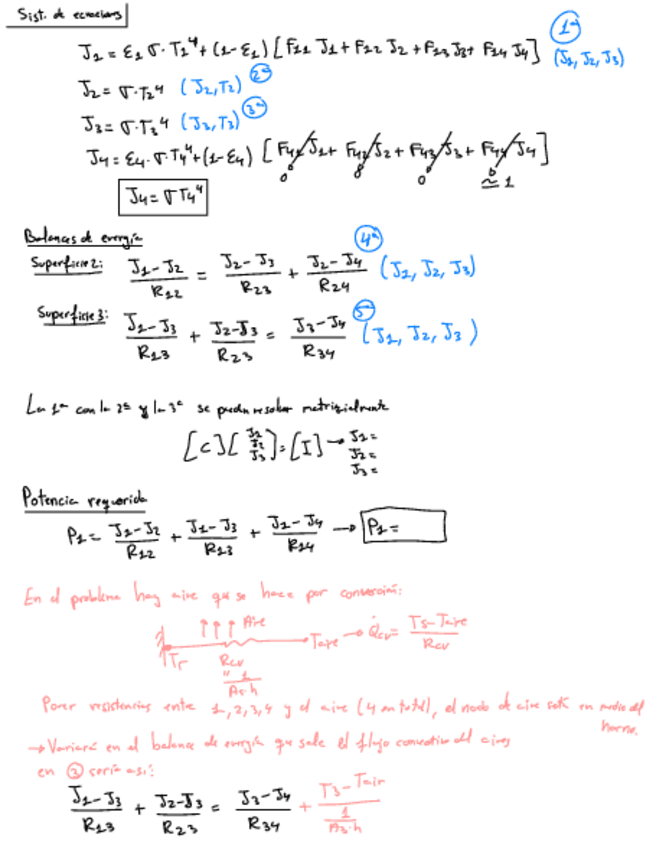 Sist. de ecuaciones
J1 = ε1 σ·T1⁴ + (1-ε1) [F11 J1 + F12 J2 + F13 J3 + F14 J4] 1ª (J1, J2, J3)
J2 = σ·T2⁴ (J2, T2) 2ª
J3 = σ·T3⁴ (J3, T3) 3ª
J4 = ε4·σ·T4⁴ + (1-ε4) [F41 J1 + F42 J2 + F43 J3 + F44 J4]
0 0 0 ≃ 1
J4 = σ T4⁴
Balances de energía
Superficie 2: (J1-J2)/R12 = (J2-J3)/R23 + (J2-J4)/R24 4ª (J1, J2, J3)
Superficie 3: (J1-J3)/R13 + (J2-J3)/R23 = (J3-J4)/R34 5ª (J1, J2, J3)
La 1ª con la 2ª y la 3ª se pueden resolver matricialmente
[C][J1 J2 J3] = [I] → J1 =
J2 =
J3 =
Potencia requerida
P1 = (J1-J2)/R12 + (J1-J3)/R13 + (J1-J4)/R14 → P1 =
En el problema hay aire que se hace por convección:
Aire
Tr Rcv Taire → Q̇cv = (Ts-Taire)/Rcv
" 1/(As·h)
Poner resistencias entre 1, 2, 3, 4 y el aire (4 en total), el nodo de aire está en medio del
horno.
→ Variará en el balance de energía que sale el flujo convectivo del aire,
en 3 sería así:
(J1-J3)/R13 + (J2-J3)/R23 = (J3-J4)/R34 + (T3-Tair)/(1/(A3·h))